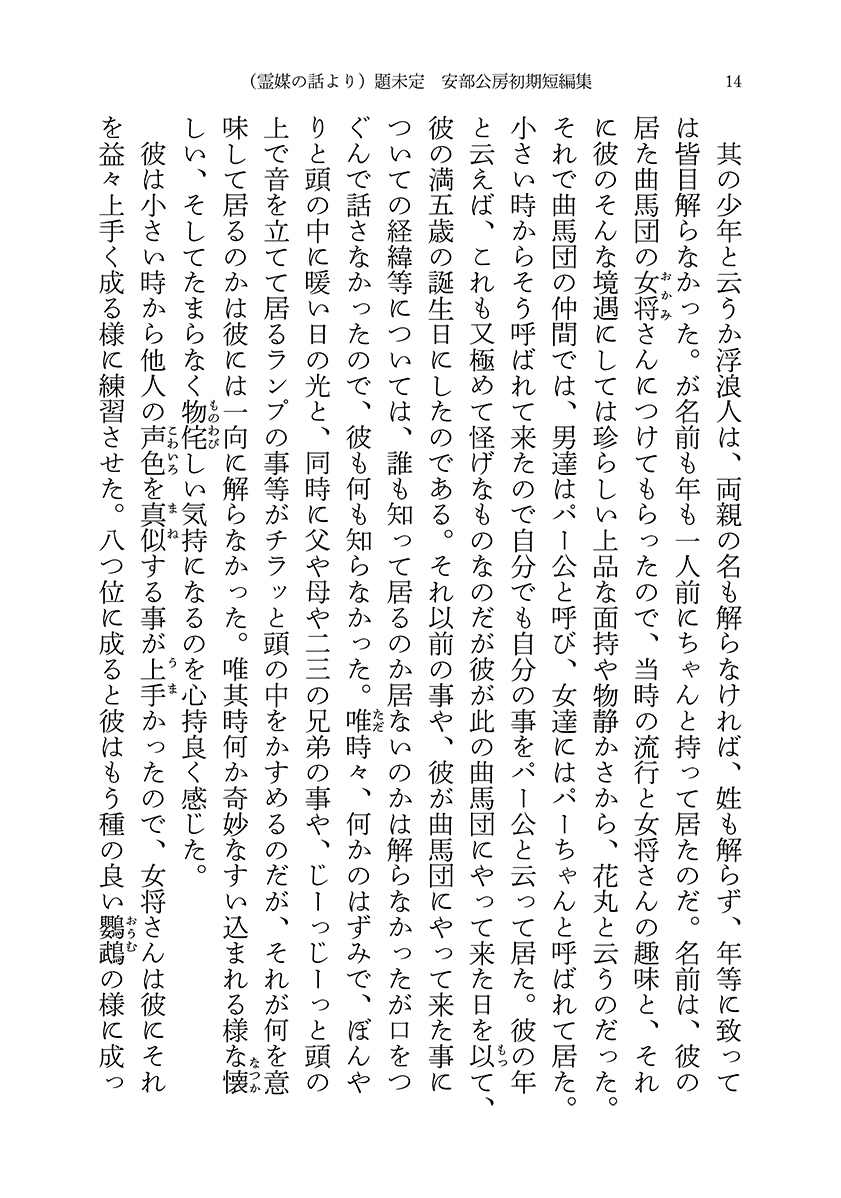 (霊媒の話より)題未定　安部公房初期短編集
14
其の少年と云うか浮浪人は、両親の名も解らなければ、姓も解らず、年等に致って
は皆目解らなかった。が名前も年も一人前にちゃんと持って居たのだ。名前は、彼の
居た曲馬団の女将さんにつけてもらったので、当時の流行と女将さんの趣味と、それ
に彼のそんな境遇にしては珍らしい上品な面持や物静かさから、花丸と云うのだった。
それで曲馬団の仲間では、男達はパー公と呼び、女達にはパーちゃんと呼ばれて居た。
小さい時からそう呼ばれて来たので自分でも自分の事をパー公と云って居た。彼の年
と云えば、これも又極めて怪げなものなのだが彼が此の曲馬団にやって来た日を以て、
彼の満五歳の誕生日にしたのである。それ以前の事や、彼が曲馬団にやって来た事に
ついての経緯等については、誰も知って居るのか居ないのかは解らなかったが口をつ
ぐんで話さなかったので、彼も何も知らなかった。唯時々、何かのはずみで、ぼんや
りと頭の中に暖い日の光と、同時に父や母や二三の兄弟の事や、じーっじーっと頭の
上で音を立てて居るランプの事等がチラッと頭の中をかすめるのだが、それが何を意
味して居るのかは彼には一向に解らなかった。唯其時何か奇妙なすい込まれる様な懐
しい、そしてたまらなく物侘しい気持になるのを心持良く感じた。
彼は小さい時から他人の声色を真似する事が上手かったので、女将さんは彼にそれ
を益々上手く成る様に練習させた。八つ位に成ると彼はもう種の良い鸚鵡の様に成っ